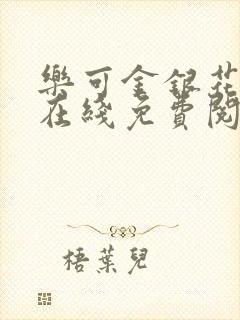 樂可金銀花
在綫免費閱
梧葉兒